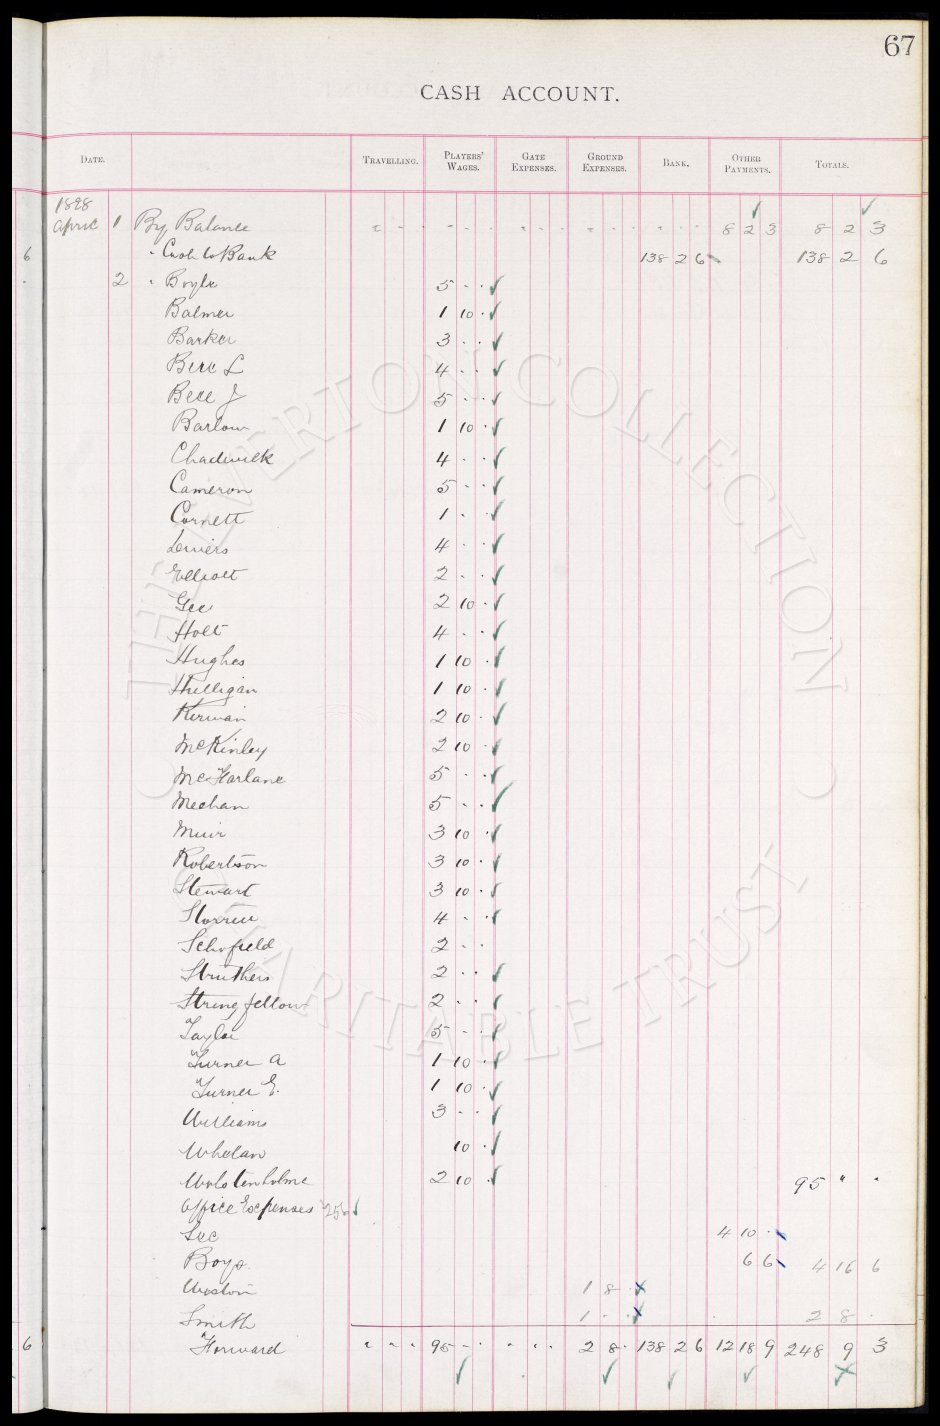 67
CASH ACCOUNT.
DATE. TRAVELLING. PLAYERS' WAGES. GATE EXPENSES. GROUND EXPENSES. BANK. OTHER PAYMENTS. TOTALS.
1898
April 1 By Balance " " " " " " " " " " " " " " " 8 2 3 8 2 3
6 " Cash to Bank 138 2 6 138 2 6
2 " Boyle 5 - -
Balmer 1 10 -
Barker 3 - -
Bell L 4 - -
Bell J 5 - -
Barlow 1 10 -
Chadwick 4 - -
Cameron 5 - -
Cornett 1 - -
Divers 4 - -
Elliott 2 - -
Gee 2 10 -
Holt 4 - -
Hughes 1 10 -
Hulligan 1 10 -
Kirwan 2 10 -
McKinley 2 10 -
McFarlane 5 - -
Meehan 5 - -
Muir 3 10 -
Robertson 3 10 -
Stewart 3 10 -
Storrier 4 - -
Schofield 2 - -
Struthers 2 - -
Stringfellow 2 - -
Taylor 5 - -
Turner A 1 10 -
Turner E. 1 10 -
Williams 3 - -
Whelan 10 -
Wolstenholme 2 10 - 95 " "
Office Expenses 256
Sec 4 10 -
Boys 6 6 4 16 6
Weston 1 8 -
Smith 1 - - 2 8 -
6 Forward " " " 95 - - " " " 2 8 - 138 2 6 12 18 9 248 9 3
THE EVERTON COLLECTION CHARITABLE TRUST